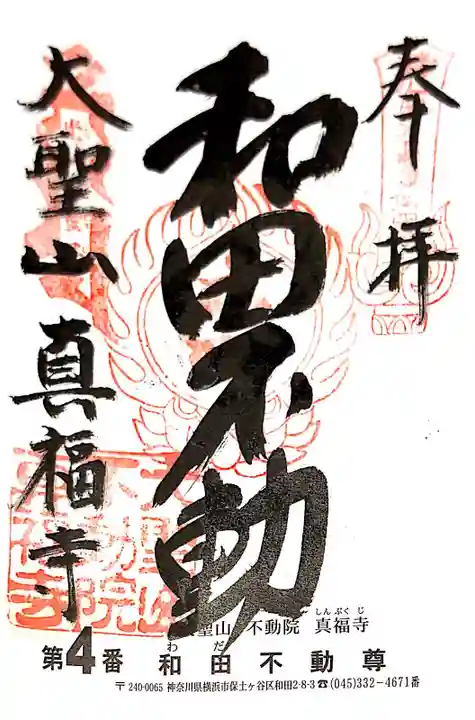 奉拝
和田不動
大聖山 真福寺
聖山 不動院 真福寺
しんぷくじ
第4番 和田不動尊
わだ
〒240-0065 神奈川県横浜市保土ヶ谷区和田2-8-3☎(045)332-4671番